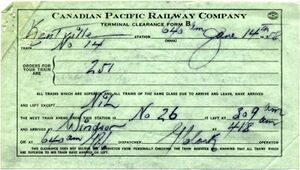 CANADIAN PACIFIC RAILWAY COMPANY
TERMINAL CLEARANCE FORM B
Kentville STATION 640 km June 14th
No 14
ORDERS FOR YOUR TRAIN ARE 251
ALL TRAINS WHICH ARE SUPERIOR AND ALL TRAINS OF THE SAME CLASS DUE TO ARRIVE AND LEAVE, HAVE ARRIVED
AND LEFT EXCEPT Nil
THE NEXT TRAIN AHEAD FROM THE STATION IS No 26 IT LEFT 309
ARRIVED AT Windsor AT 418
OK AT 640 DISPATCHER OPERATOR
THIS CLEARANCE DOES NOT RELIEVE THE CONDUCTOR FROM PERSONALLY CHECKING THE TRAIN REGISTER AND KNOWING THAT ALL TRAINS WHICH
ARE SUPERIOR TO HIS TRAIN HAVE ARRIVED OR LEFT.